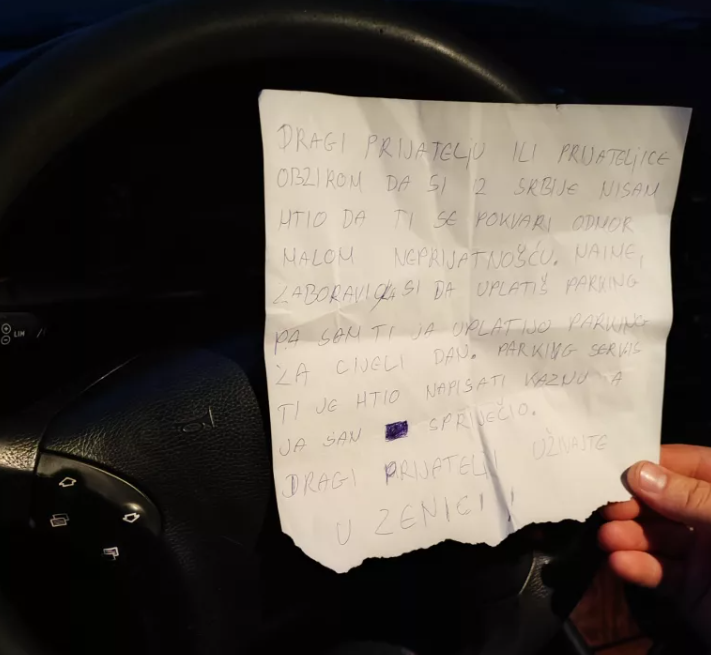 DRAGI PRIJATELjU ILI PRIJATELjICE
OBZIROM DA SI IZ SRBIJE NISAM
HTIO DA TI SE POKVARI ODMOR
MALOM NEPRIJATNOŠĆU. NAIME,
ZABORAVIO SI DA UPLATIŠ PARKING
PA SAM TI JA UPLATIJO PARKING
ZA CIJELI DAN. PARKING SERVIS
TI JE HTIO NAPISATI KAZNU A
JA SAM SPRIJEČIO.
DRAGI PRIJATELJI UŽIVAJTE
U ZENICI!
LIM